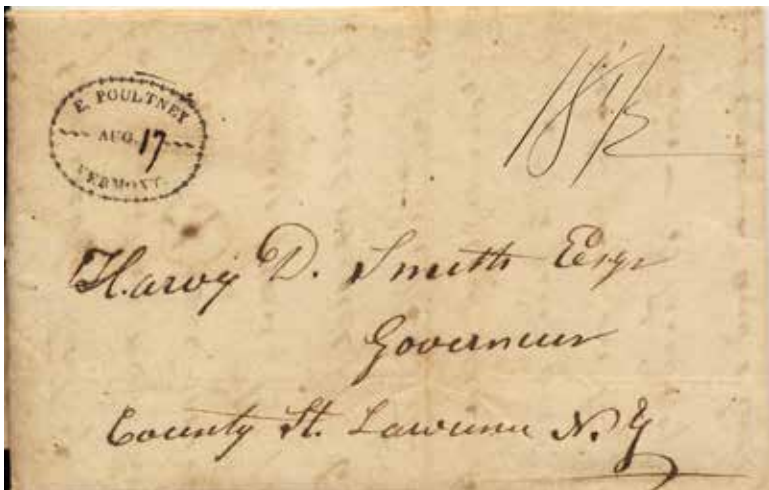 E. POULTNEY
AUG. 17
VERMONT.
18 1/2
Harvy D. Smith Esqr
Governeur
County St. Lawrence N. Y